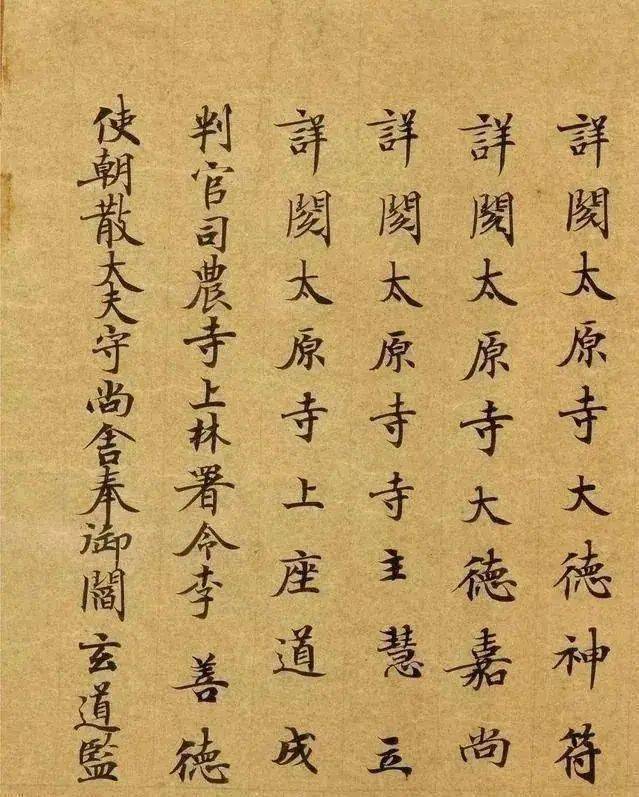 詳閱太原寺大德神符
詳閱太原寺大德嘉尚
詳閱太原寺寺主慧立
詳閱太原寺上座道成
判官司農寺上林署令李善德
使朝散大夫守尚舍奉御閻玄道監